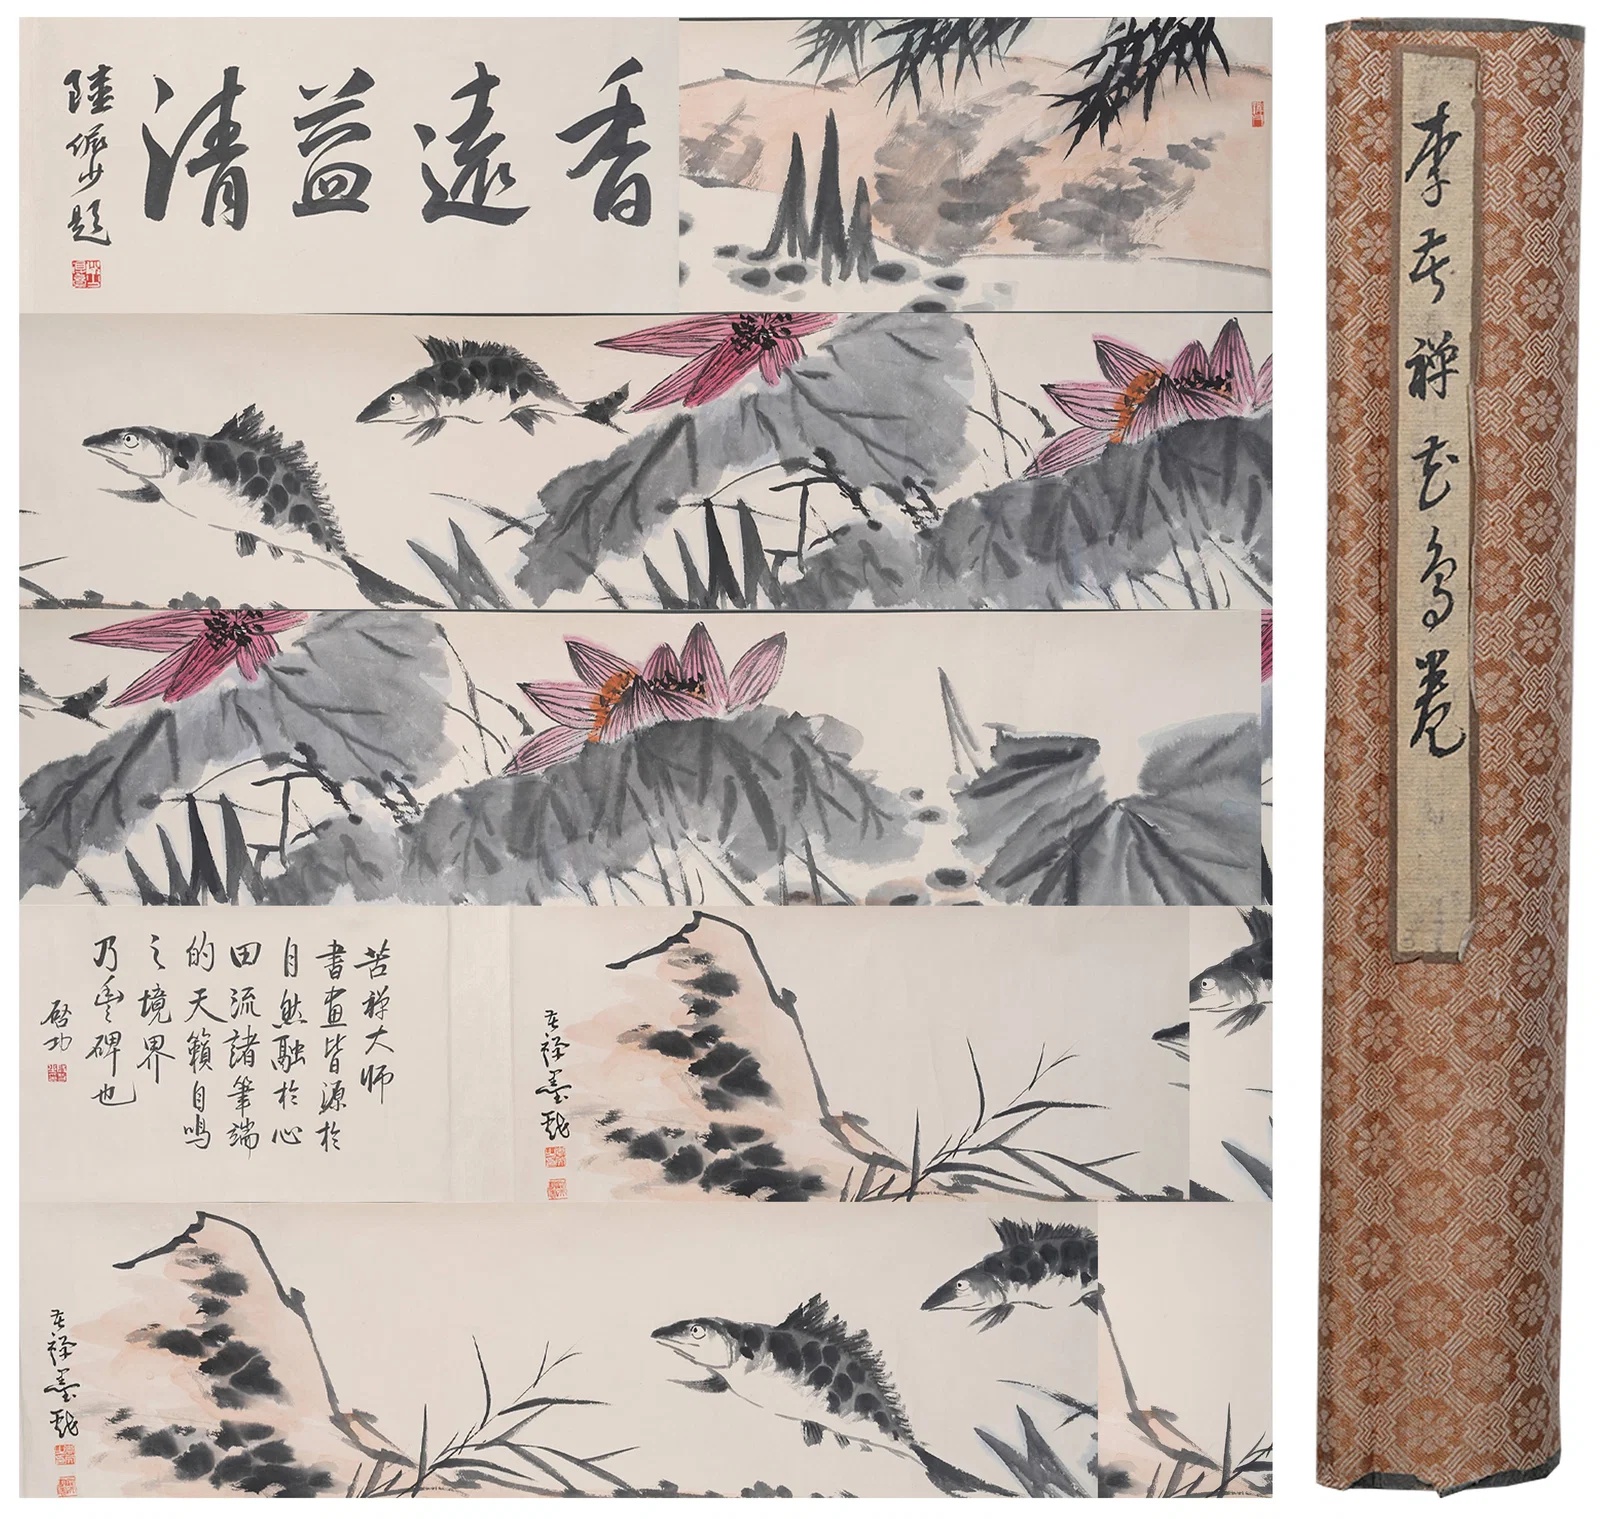 香遠益清
陸儼少題
苦禅大师
書畫皆源於
自然融於心
田流諸筆端
的天籟自鳴
之境界
乃豐碑也
啓功
苦禅墨戲
苦禅墨戲
李苦禅花鸟卷